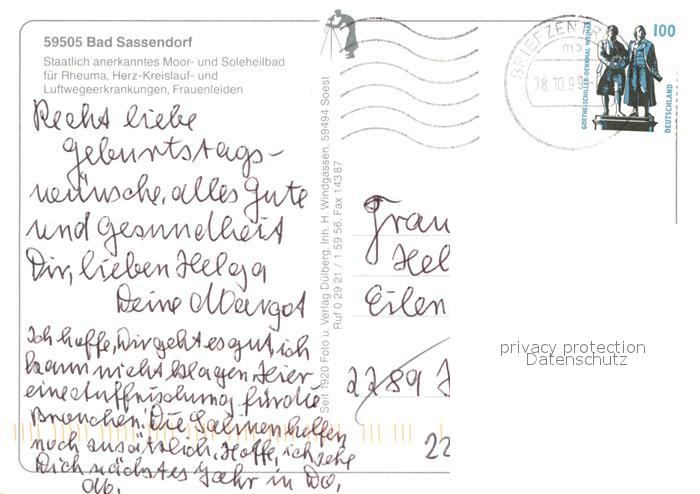 59505 Bad Sassendorf
Staatlich anerkanntes Moor- und Soleheilbad
für Rheuma, Herz-Kreislauf- und
Luftwegeerkrankungen, Frauenleiden
Recht liebe
Geburtstags-
wünsche, alles Gute
und Gesundheit
Dir, lieben Helga
Deine Margot
Ich hoffe, Dir geht es gut, ich
kann nicht klagen. Hier
eine Auffrischung für die
Bronchien. Die Salinen helfen
noch zusätzlich. Hoffe, ich sehe
Dich nächstes Jahr in Do,
Seit 1920 Foto u. Verlag Dülberg, Inh. H. Windgassen, 59494 Soest
Ruf 0 29 21 / 1 59 56, Fax 14387
BRIEFZENTR
18.10.99
GOETHE-SCHILLER-DENKMAL WEIMAR
100
DEUTSCHLAND
Frau
Hel
Eilen
2289
22
privacy protection
Datenschutz